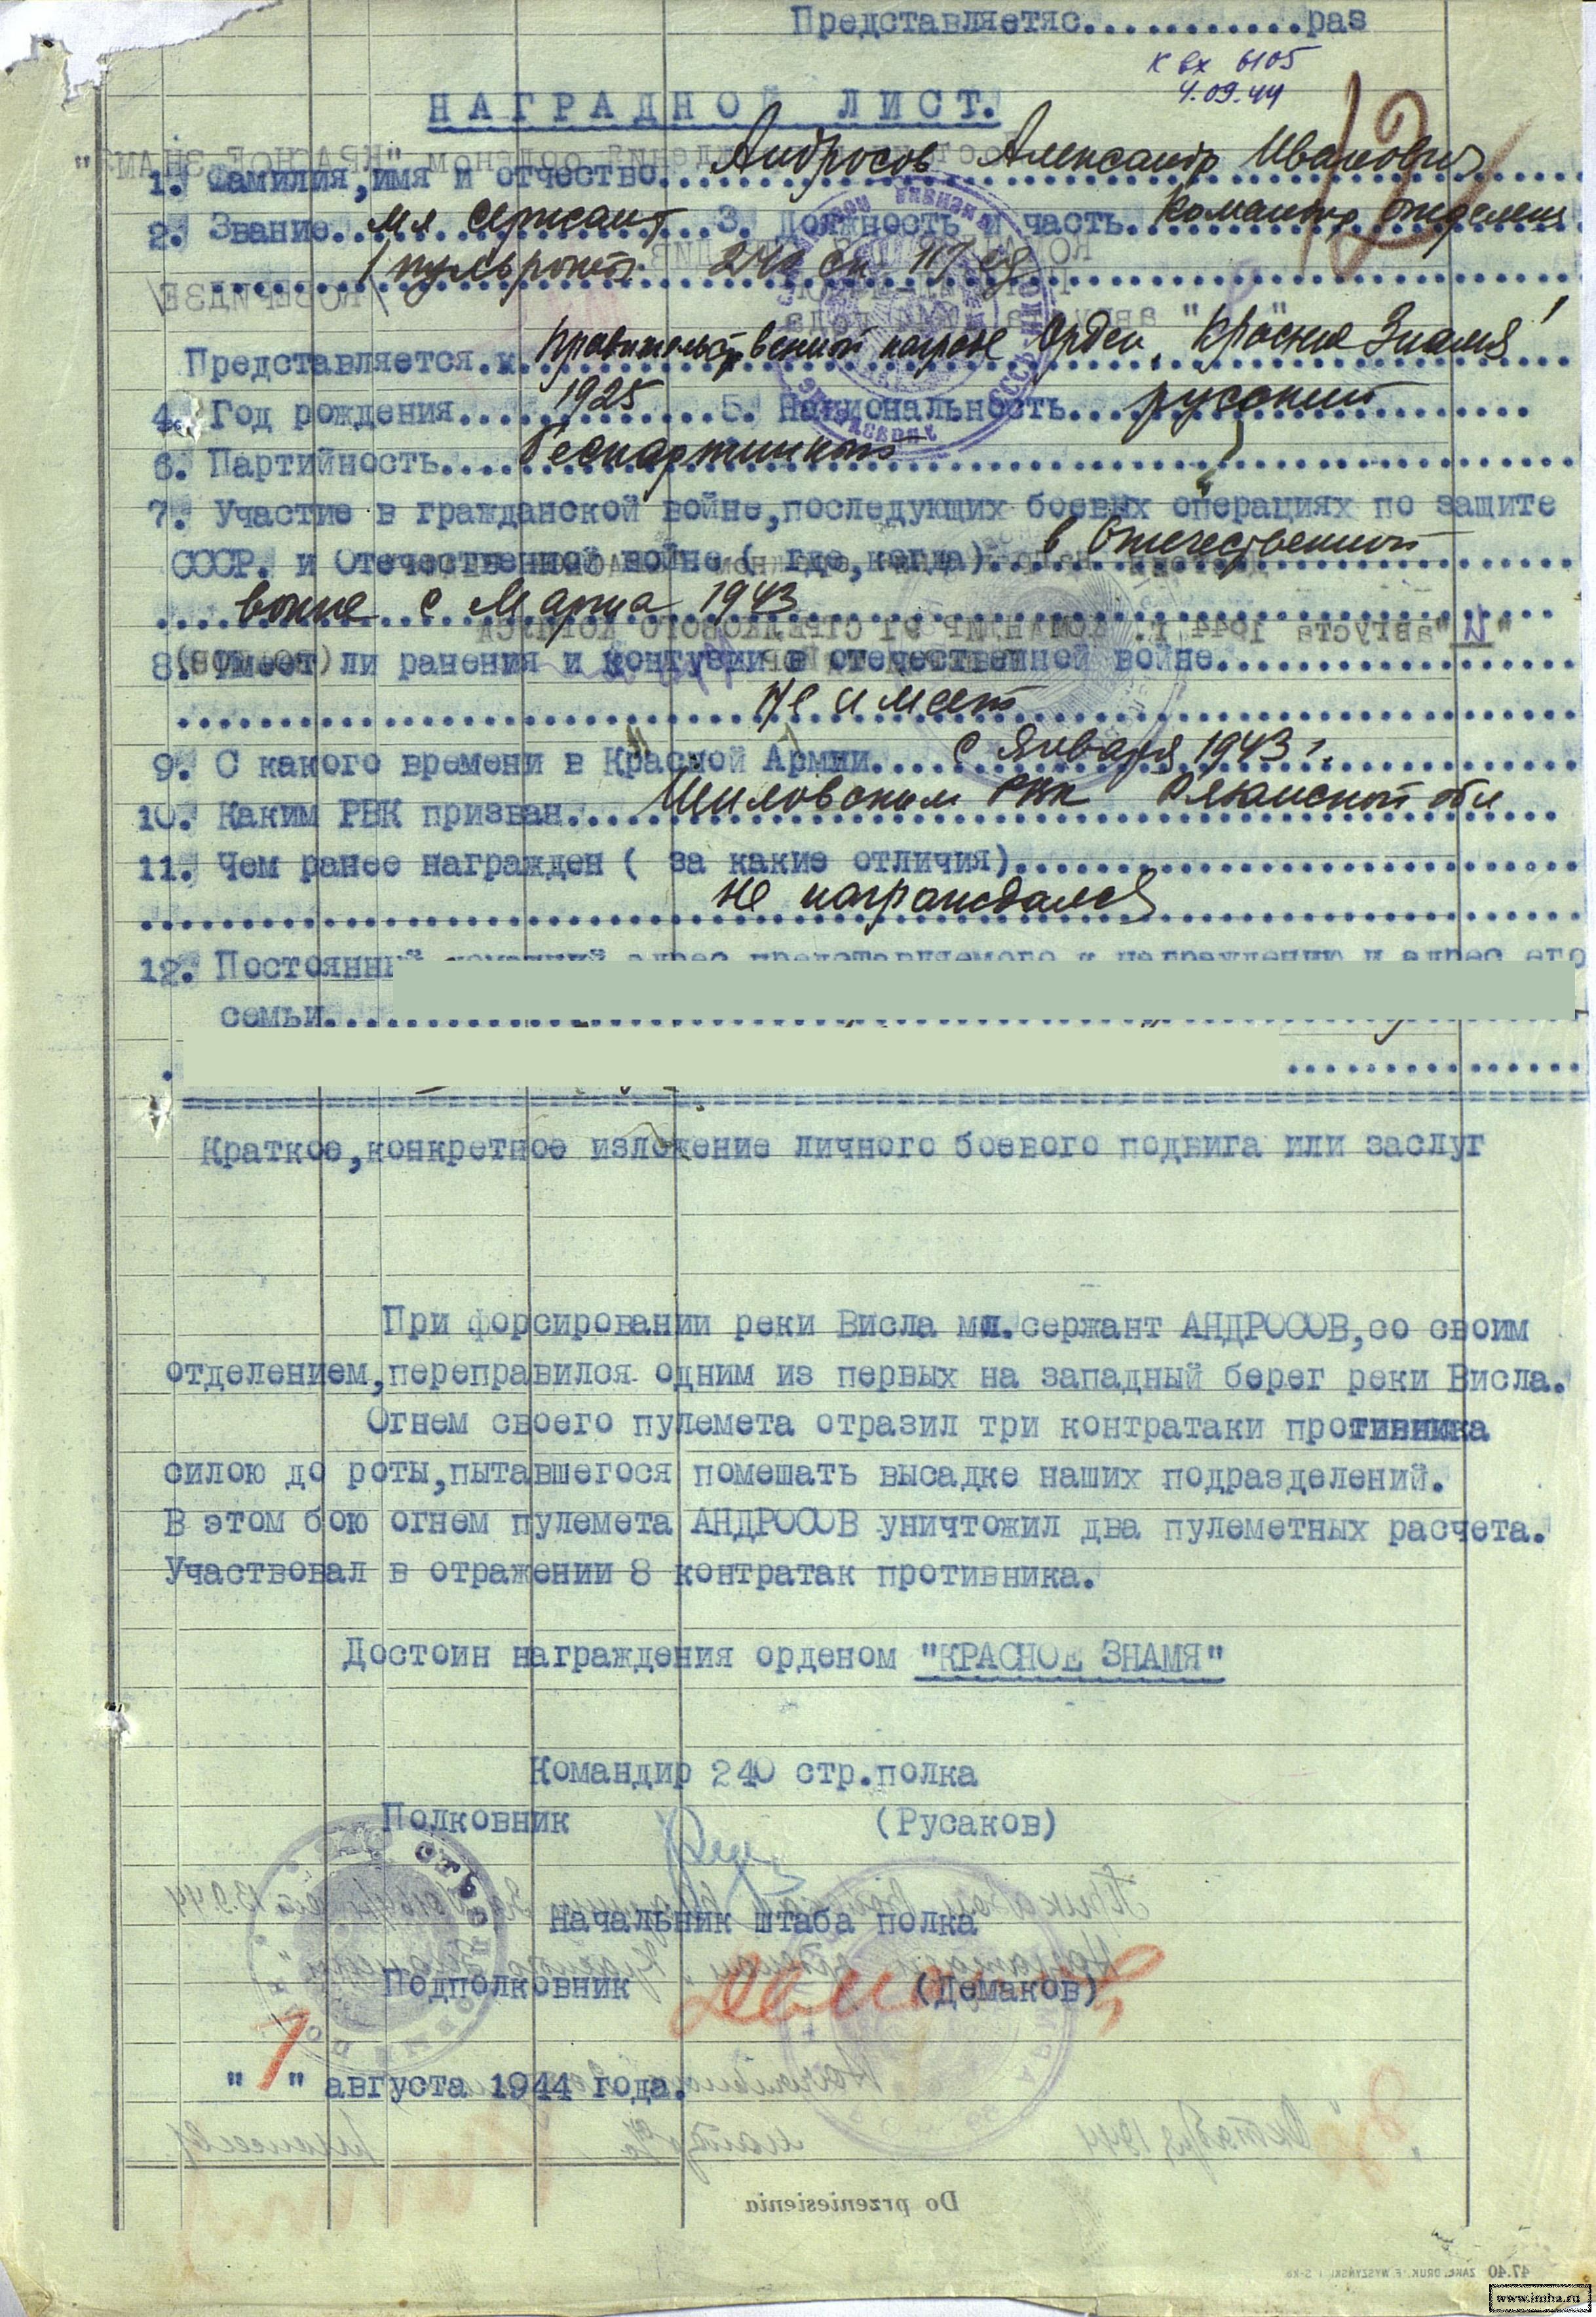 Представляетяс............раз
к вх 6105
4.09.44
НАГРАДНОЙ ЛИСТ.
12
1. Фамилия,имя и отчество.. Андросов Александр Иванович
2. Звание.. мл сержант 3. Должность и часть. Командир отделения
1 пульроты 240 сп 117 сд
Представляется.к. правительственной награде Орден "Красное Знамя"
4. Год рождения.... 1925 5. Национальность... русский
6. Партийность.... беспартийный
7. Участие в гражданской войне,последующих боевых операциях по защите
СССР. и Отечественной войне ( где,когда).. в Отечественной
войне с Марта 1943
8. Имеет ли ранения и контузии в отечественной войне...........
не имеет
9. С какого времени в Красной Армии.... с Января 1943 г.
10. Каким РВК призван.. Шиловским РВК Рязанской обл
11. Чем ранее награжден ( за какие отличия)...............
не награждался
12. Постоянный
семьи.....
Краткое,конкретное изложение личного боевого подвига или заслуг
При форсировании реки Висла мл.сержант АНДРОСОВ,со своим
отделением,переправился одним из первых на западный берег реки Висла.
Огнем своего пулемета отразил три контратаки противника
силою до роты,пытавшегося помешать высадке наших подразделений.
В этом бою огнем пулемета АНДРОСОВ уничтожил два пулеметных расчета.
Участвовал в отражении 8 контратак противника.
Достоин награждения орденом "КРАСНОЕ ЗНАМЯ"
Командир 240 стр.полка
Полковник (Русаков)
Начальник штаба полка
Подполковник (Демаков)
"7" августа 1944 года.
Do przeniesienia
www.imha.ru